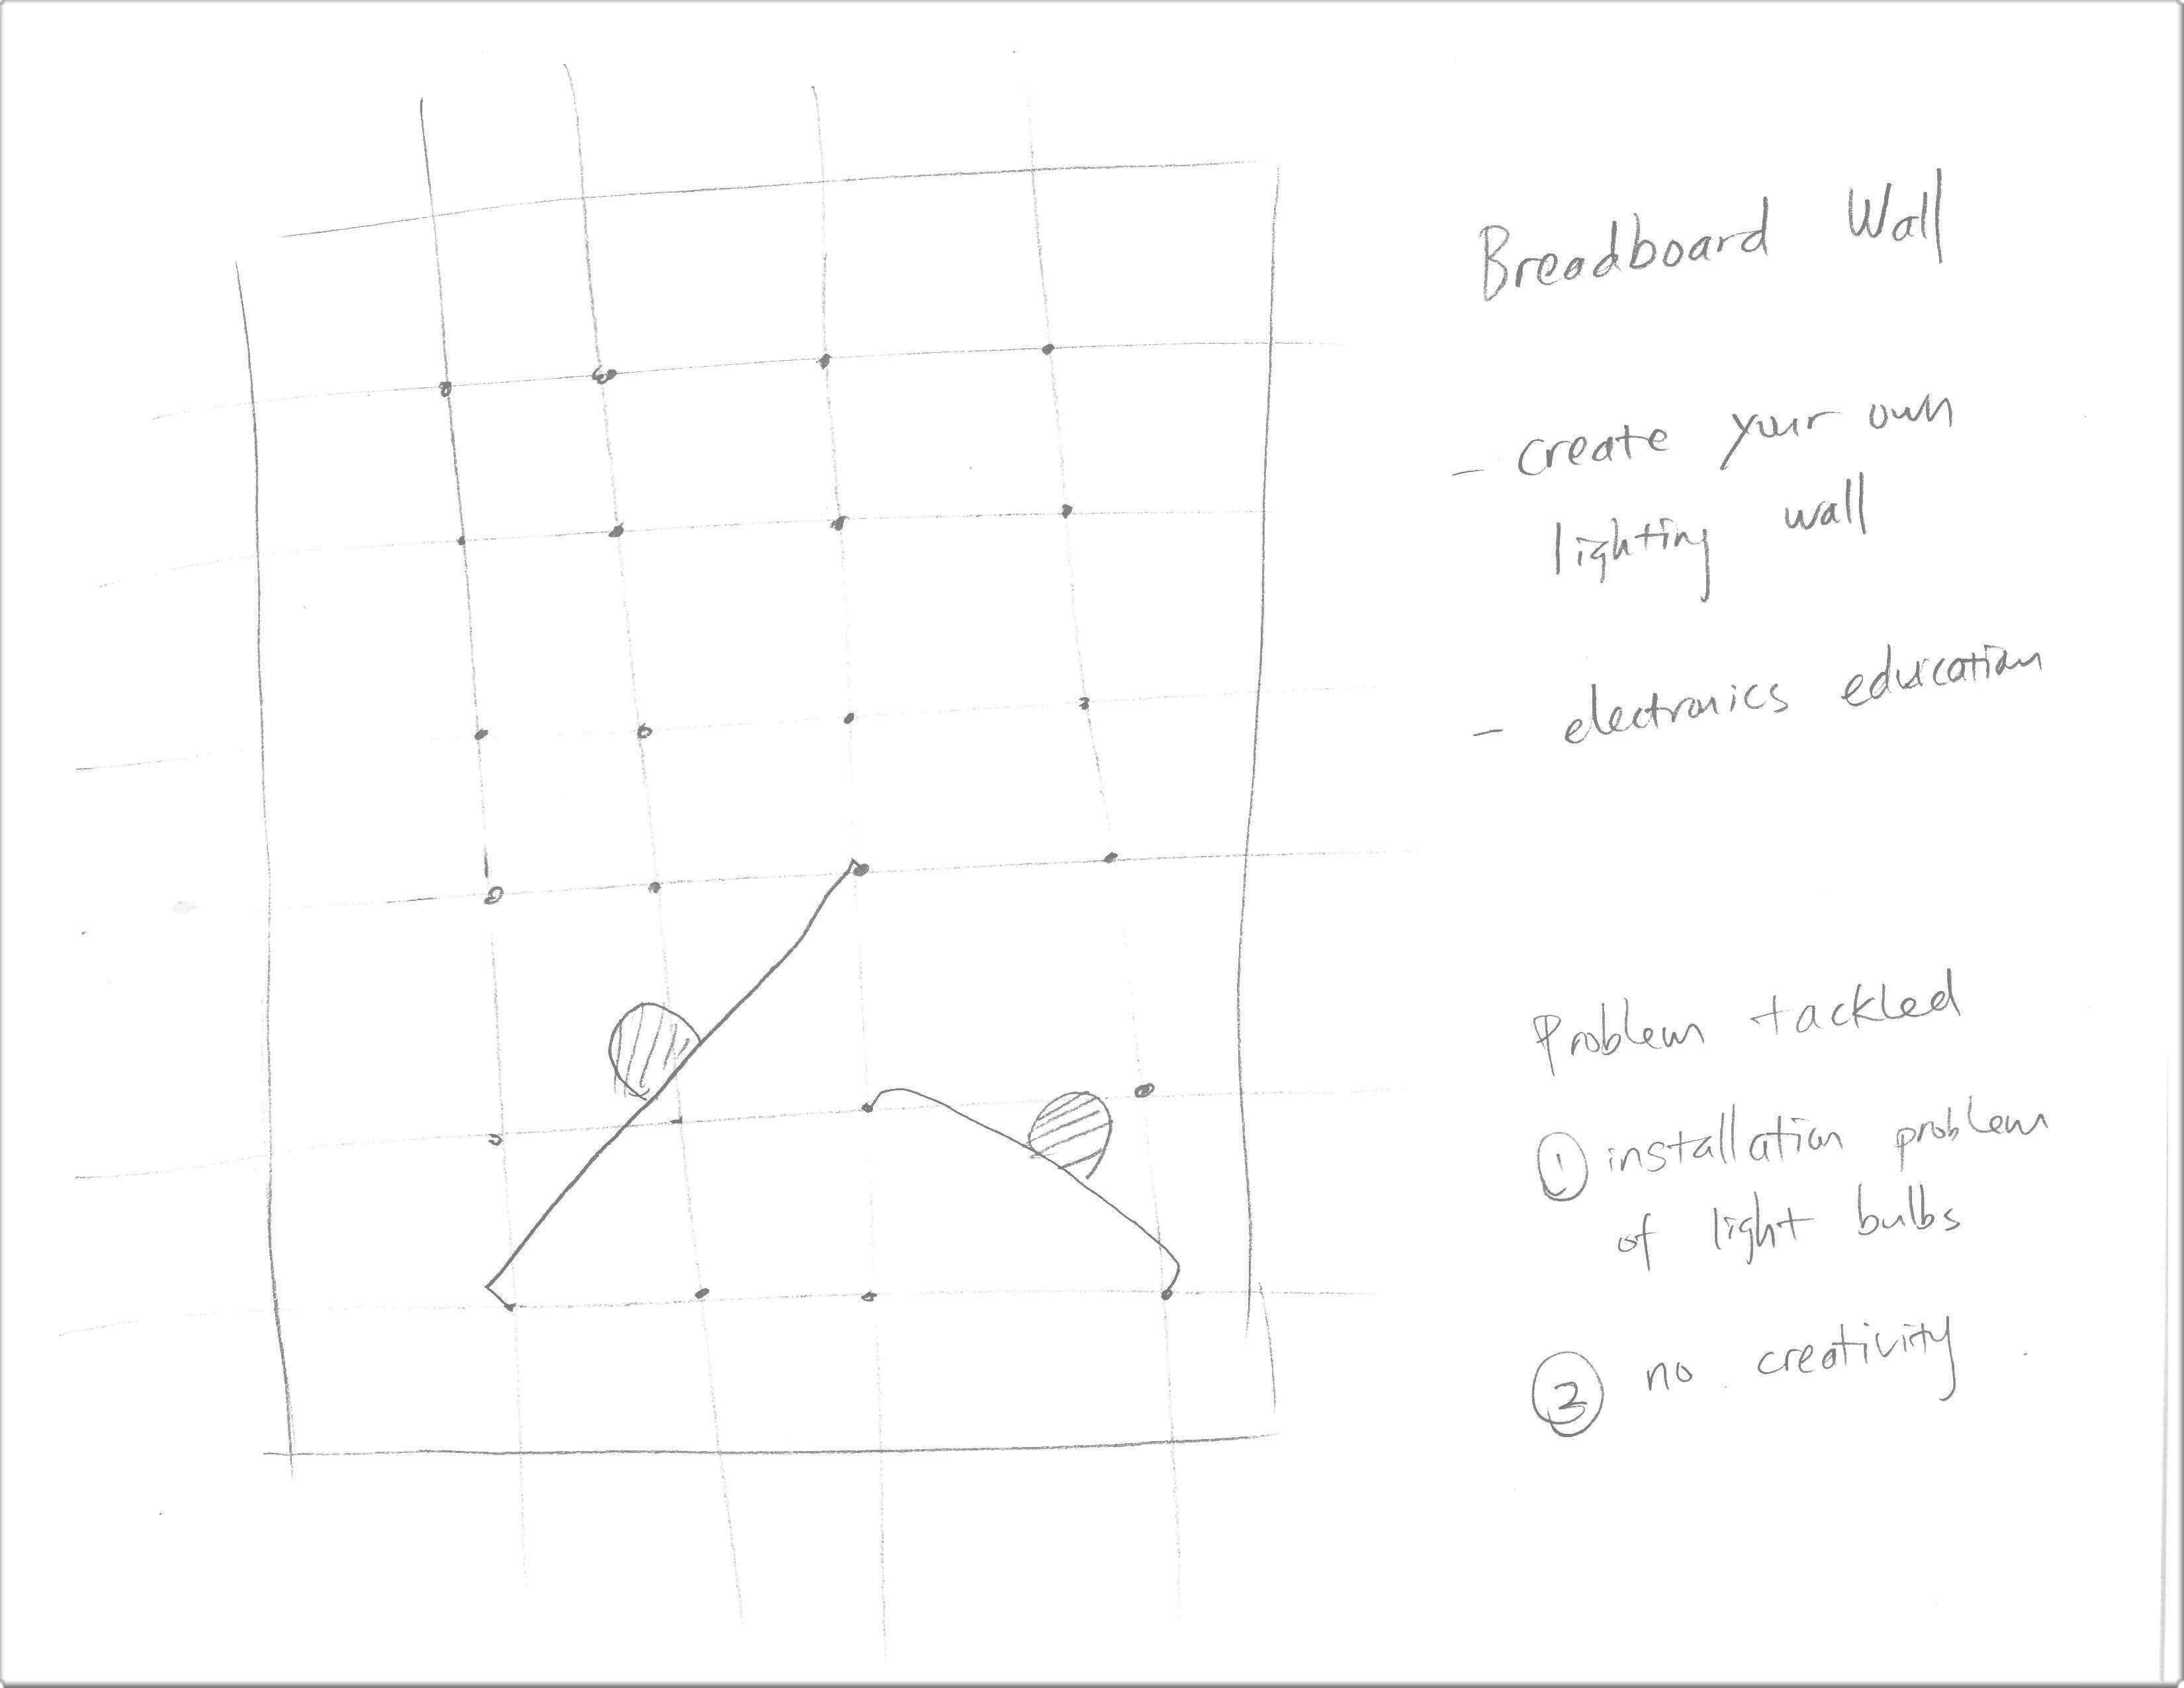 Breadboard Wall
- create your own
lighting wall
- electronics education
Problem tackled
① installation problem
of light bulbs
② no creativity